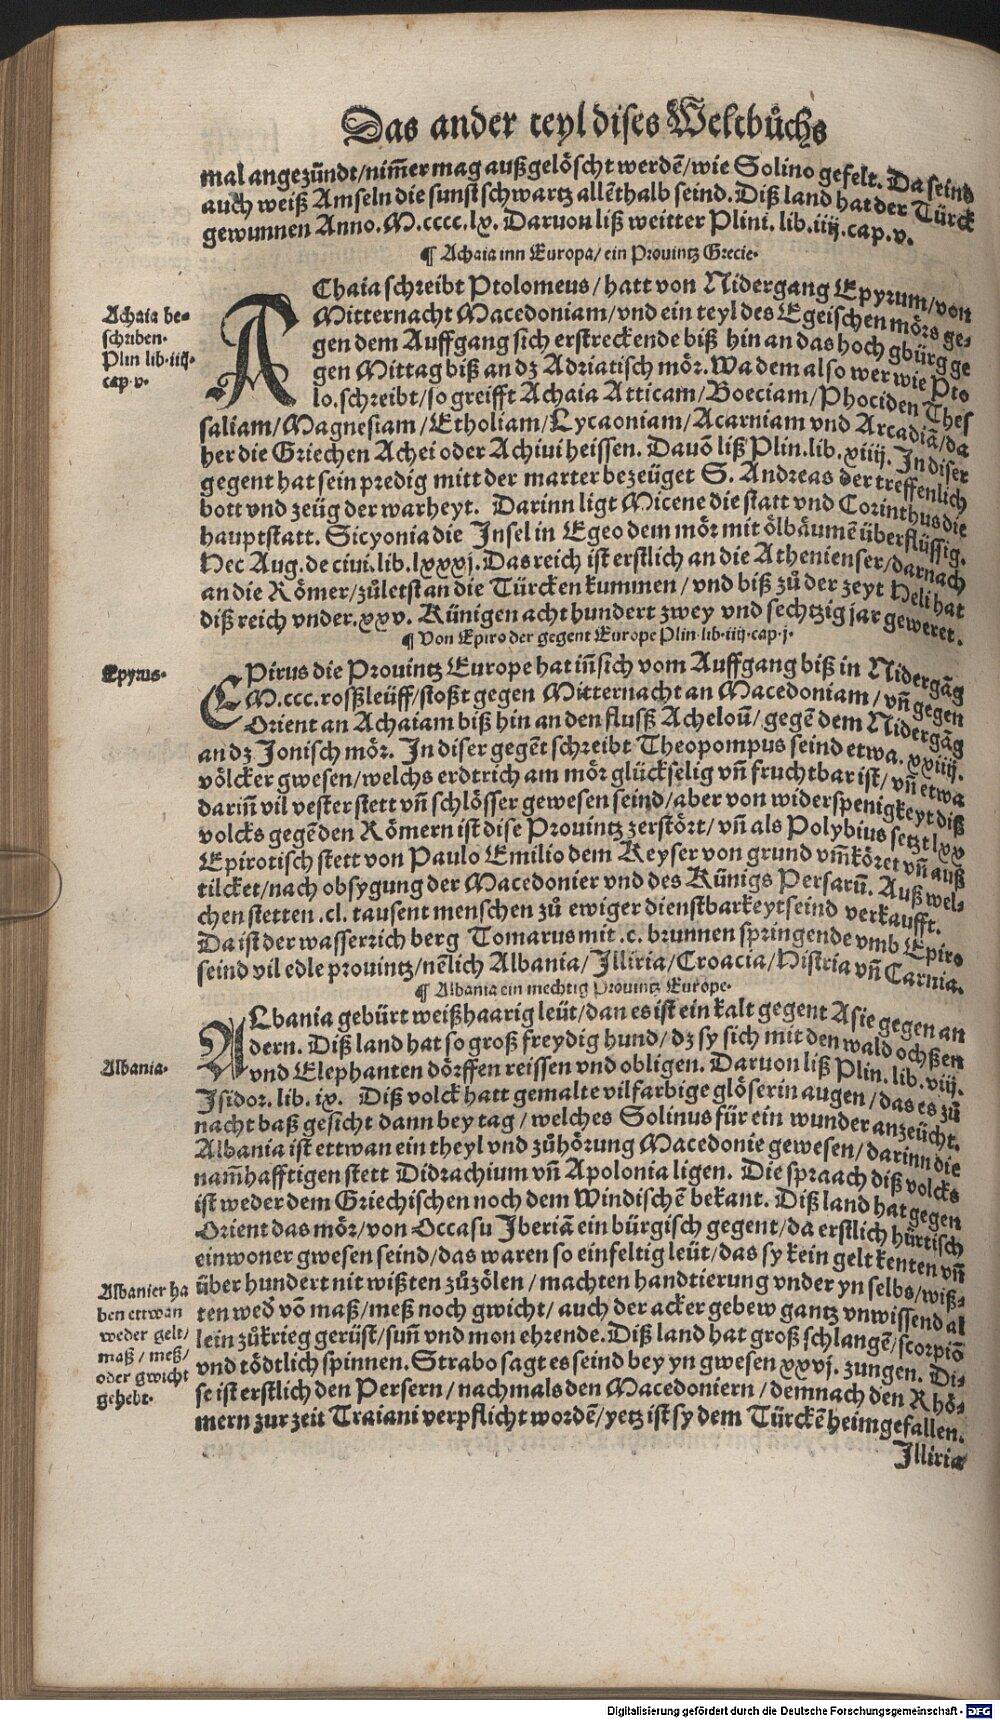 Das ander teyl dises Weltbůchs
mal angezündt/nim̃er mag außgelöscht werdẽ/wie Solino gefelt. Da seind
auch weiß Amseln die sunst schwartz allẽthalb seind. Diß land hat der Türck
gewunnen Anno. M.cccc.lx. Daruon liß weitter Plini. lib.iiij.cap.v.
¶ Achaia inn Europa/ ein Prouintz Grecie.
Achaia be=
schriben.
Plin lib.iiij.
cap v.
AChaia schreibt Ptolomeus/hatt von Nidergang Epyrum/von
Mitternacht Macedoniam/vnd ein teyl des Egeischen mörs ge=
gen dem Auffgang sich erstreckende biß hin an das hoch gbürg ge
gen Mittag biß an dz Adriatisch mör. Wa dem also wer wie Pto
lo.schreibt/so greifft Achaia Atticam/Boeciam/Phociden Thes
saliam/Magnesiam/Etholiam/Lycaoniam/Acarniam vnd Arcadiã/da
her die Griechen Achei oder Achiui heissen. Dauõ liß Plin.lib.xiiij. In diser
gegent hat sein predig mitt der marter bezeüget S. Andreas der treffenlich
bott vnd zeüg der warheyt. Darinn ligt Micene die statt vnd Corinthus die
hauptstatt. Sicyonia die Insel in Egeo dem mör mit ölbäumẽ überflüssig.
Hec Aug.de ciui.lib.lxxxvj. Das reich ist erstlich an die Athenienser/darnach
an die Römer/zůletst an die Türcken kummen/vnd biß zů der zeyt Heli hat
diß reich vnder.xxv. Künigen acht hundert zwey vnd sechtzig jar geweret.
¶ Von Epiro der gegent Europe Plin.lib.iiij.cap.j.
Epyrus.
EPirus die Prouintz Europe hat iñ sich vom Auffgang biß in Nidergãg
M.ccc.roßleüff/stoßt gegen Mitternacht an Macedoniam/vñ gegen
Orient an Achaiam biß hin an den flusß Acheloũ/gegẽ dem Nidergãg
an dz Jonisch mör. In diser gegẽt schreibt Theopompus seind etwa.xxiiij.
völcker gwesen/welchs erdtrich am mör glückselig vñ fruchtbar ist/vñ etwa
dariñ vil vester stett vñ schlösser gewesen seind/aber von widerspenigkeyt diß
volcks gegẽ den Römern ist dise Prouintz zerstört/vñ als Polybius setzt lxx
Epirotisch stett von Paulo Emilio dem Keyser von grund vm̃köret vñ auß
tilcket/nach obsygung der Macedonier vnd des Künigs Persarũ. Auß wel=
chen stetten .cl. tausent menschen zů ewiger dienstbarkeyt seind verkaufft.
Da ist der wasserrich berg Tomarus mit .c. brunnen springende vmb Epiro
seind vil edle prouintz/nẽlich Albania/Illiria/Croacia/Histria vñ Carnia.
¶ Albania ein mechtig Prouintz Europe.
Albania.
ALbania gebürt weißhaarig leüt/dan es ist ein kalt gegent Asie gegen an
dern. Diß land hat so groß freydig hund/dz sy sich mit den wald ochßen
vnd Elephanten dörffen reissen vnd obligen. Daruon liß Plin.lib.viij.
Isidor. lib. ix. Diß volck hatt gemalte vilfarbige glöserin augen/das es zů
nacht baß gesicht dann bey tag/welches Solinus für ein wunder anzeücht.
Albania ist ettwan ein theyl vnd zůhörung Macedonie gewesen/darinn die
nam̃hafftigen stett Didrachium vñ Apolonia ligen. Die spraach diß volcks
ist weder dem Griechischen noch dem Windischẽ bekant. Diß land hat gegen
Orient das mör/von Occasu Iberiã ein bürgisch gegent/da erstlich hürtisch
einwoner gwesen seind/das waren so einfeltig leüt/das sy kein gelt kenten vñ
über hundert nit wißten zůzölen/machten handtierung vnder yn selbs/wiß=
Albanier ha
ben ettwan
weder gelt/
maß/meß/
oder gwicht
gehebt.
ten wed̕ võ maß/meß noch gwicht/auch der acker gebew gantz vnwissend al
lein zůkrieg gerüst/suñ vnd mon ehrende. Diß land hat groß schlangẽ/scorpiõ
vnd tödtlich spinnen. Strabo sagt es seind bey yn gwesen xxvj. zungen. Di=
se ist erstlich den Persern/nachmals den Macedoniern/demnach den Rhö=
mern zur zeit Traiani verpflicht wordẽ/yetz ist sy dem Türckẽ heimgefallen.
Illiria
Digitalisierung gefördert durch die Deutsche Forschungsgemeinschaft - DFG